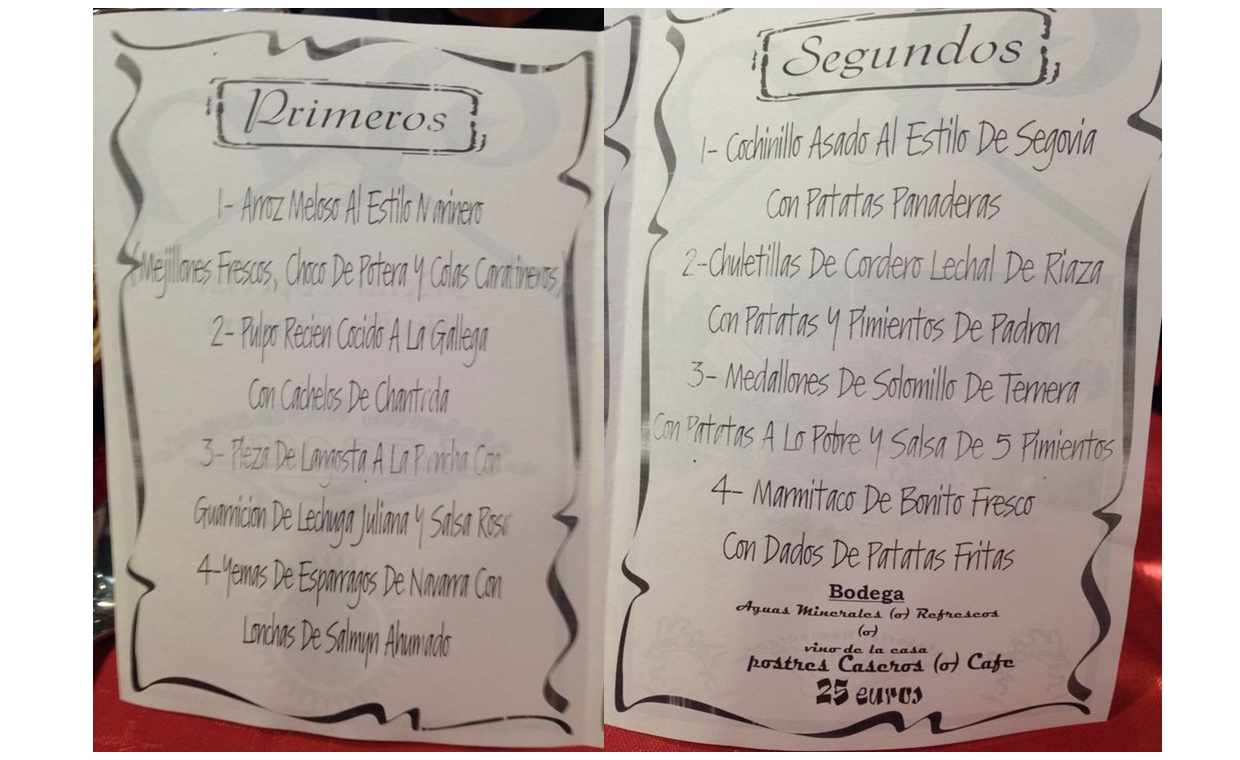 Primeros
1- Arroz Meloso Al Estilo Marinero
(Mejillones Frescos, Choco De Potera Y Colas Carabineros)
2- Pulpo Recien Cocido A La Gallega
Con Cachelos De Chantada
3- Pieza De Langosta A La Plancha Con
Guarnicion De Lechuga Juliana Y Salsa Rosa
4-Yemas De Esparragos De Navarra Con
Lonchas De Salmyn Ahumado
Segundos
1- Cochinillo Asado Al Estilo De Segovia
Con Patatas Panaderas
2-Chuletillas De Cordero Lechal De Riaza
Con Patatas Y Pimientos De Padron
3- Medallones De Solomillo De Ternera
Con Patatas A Lo Pobre Y Salsa De 5 Pimientos
4- Marmitaco De Bonito Fresco
Con Dados De Patatas Fritas
Bodega
Aguas Minerales (o) Refrescos
(o)
vino de la casa
postres Caseros (o) Cafe
25 euros